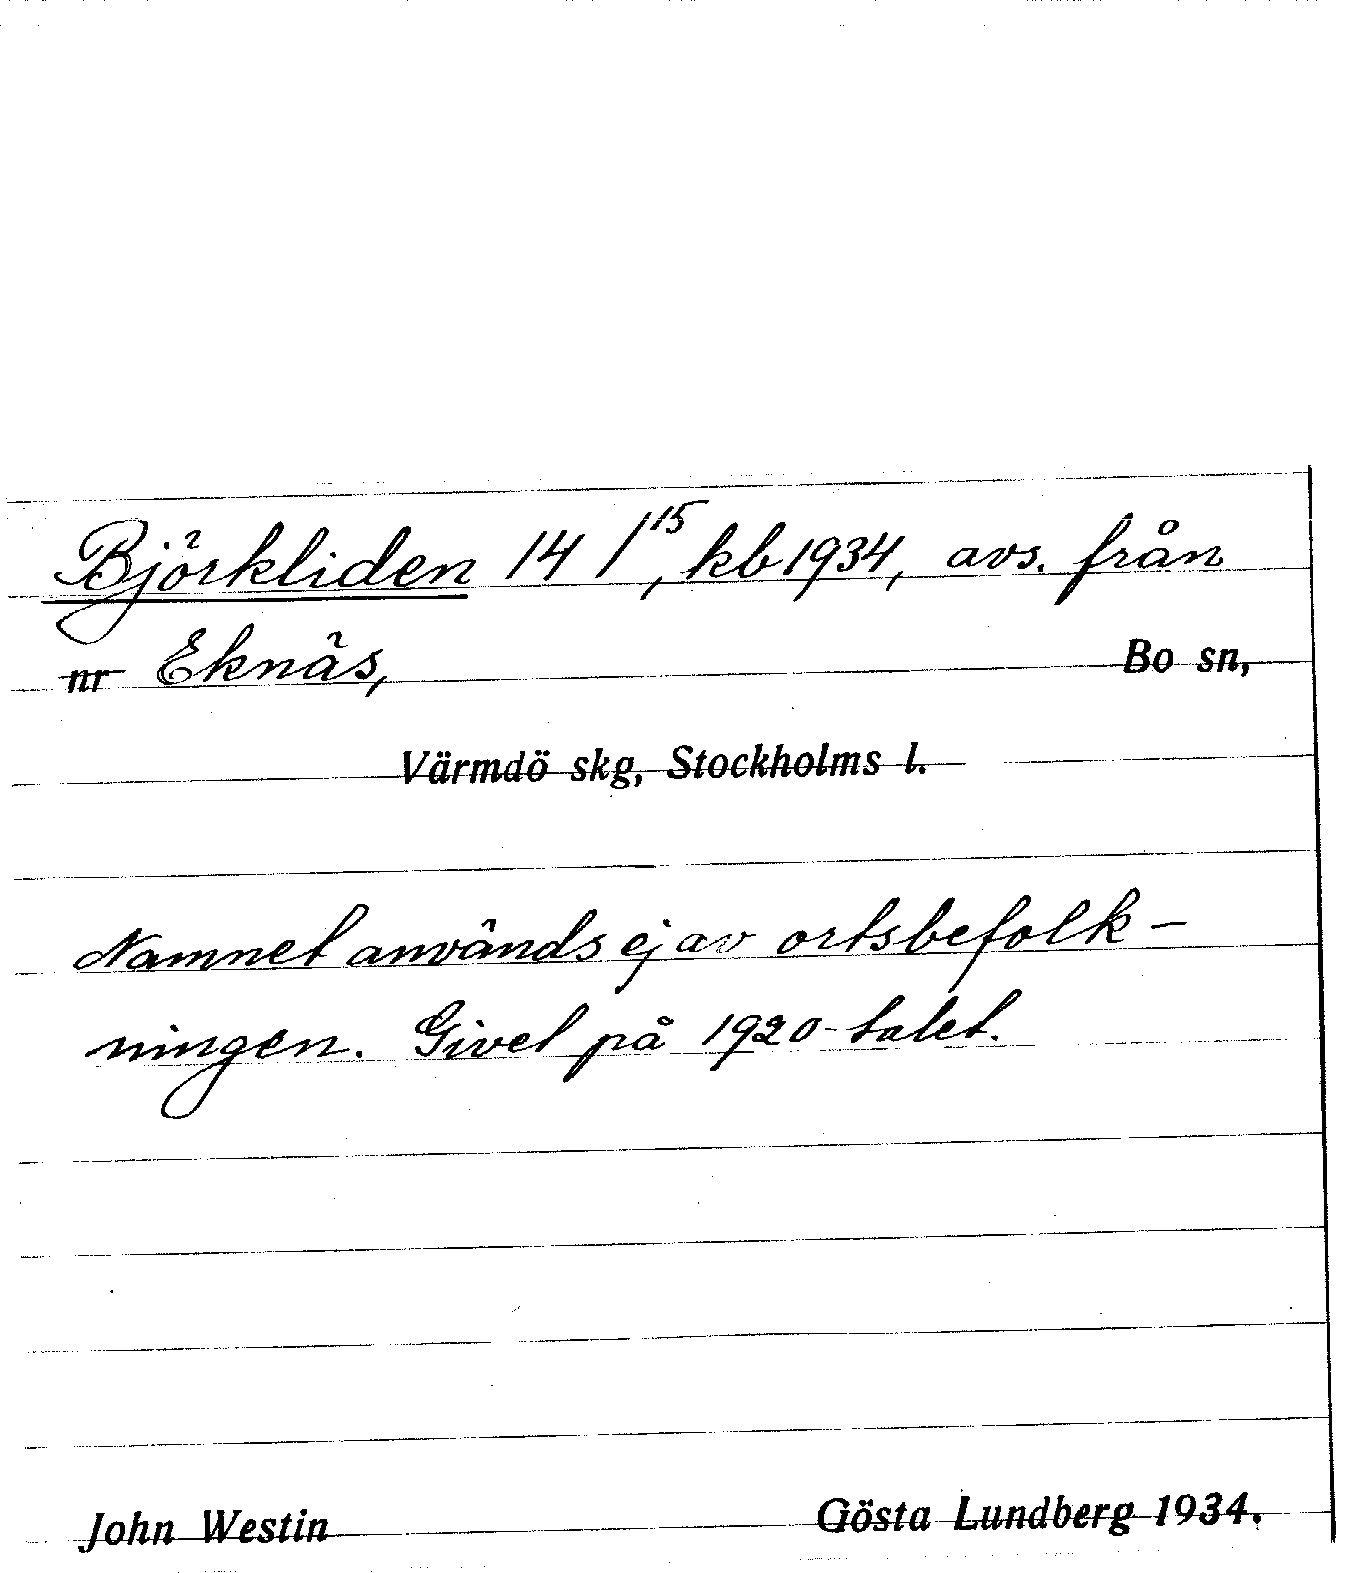 Björkliden 14 1¹⁵, kb 1934, avs. från
nr Eknäs, Bo sn,
Värmdö skg, Stockholms l.
Namnet används ej av ortsbefolk-
ningen. Givet på 1920-talet.
John Westin Gösta Lundberg 1934.